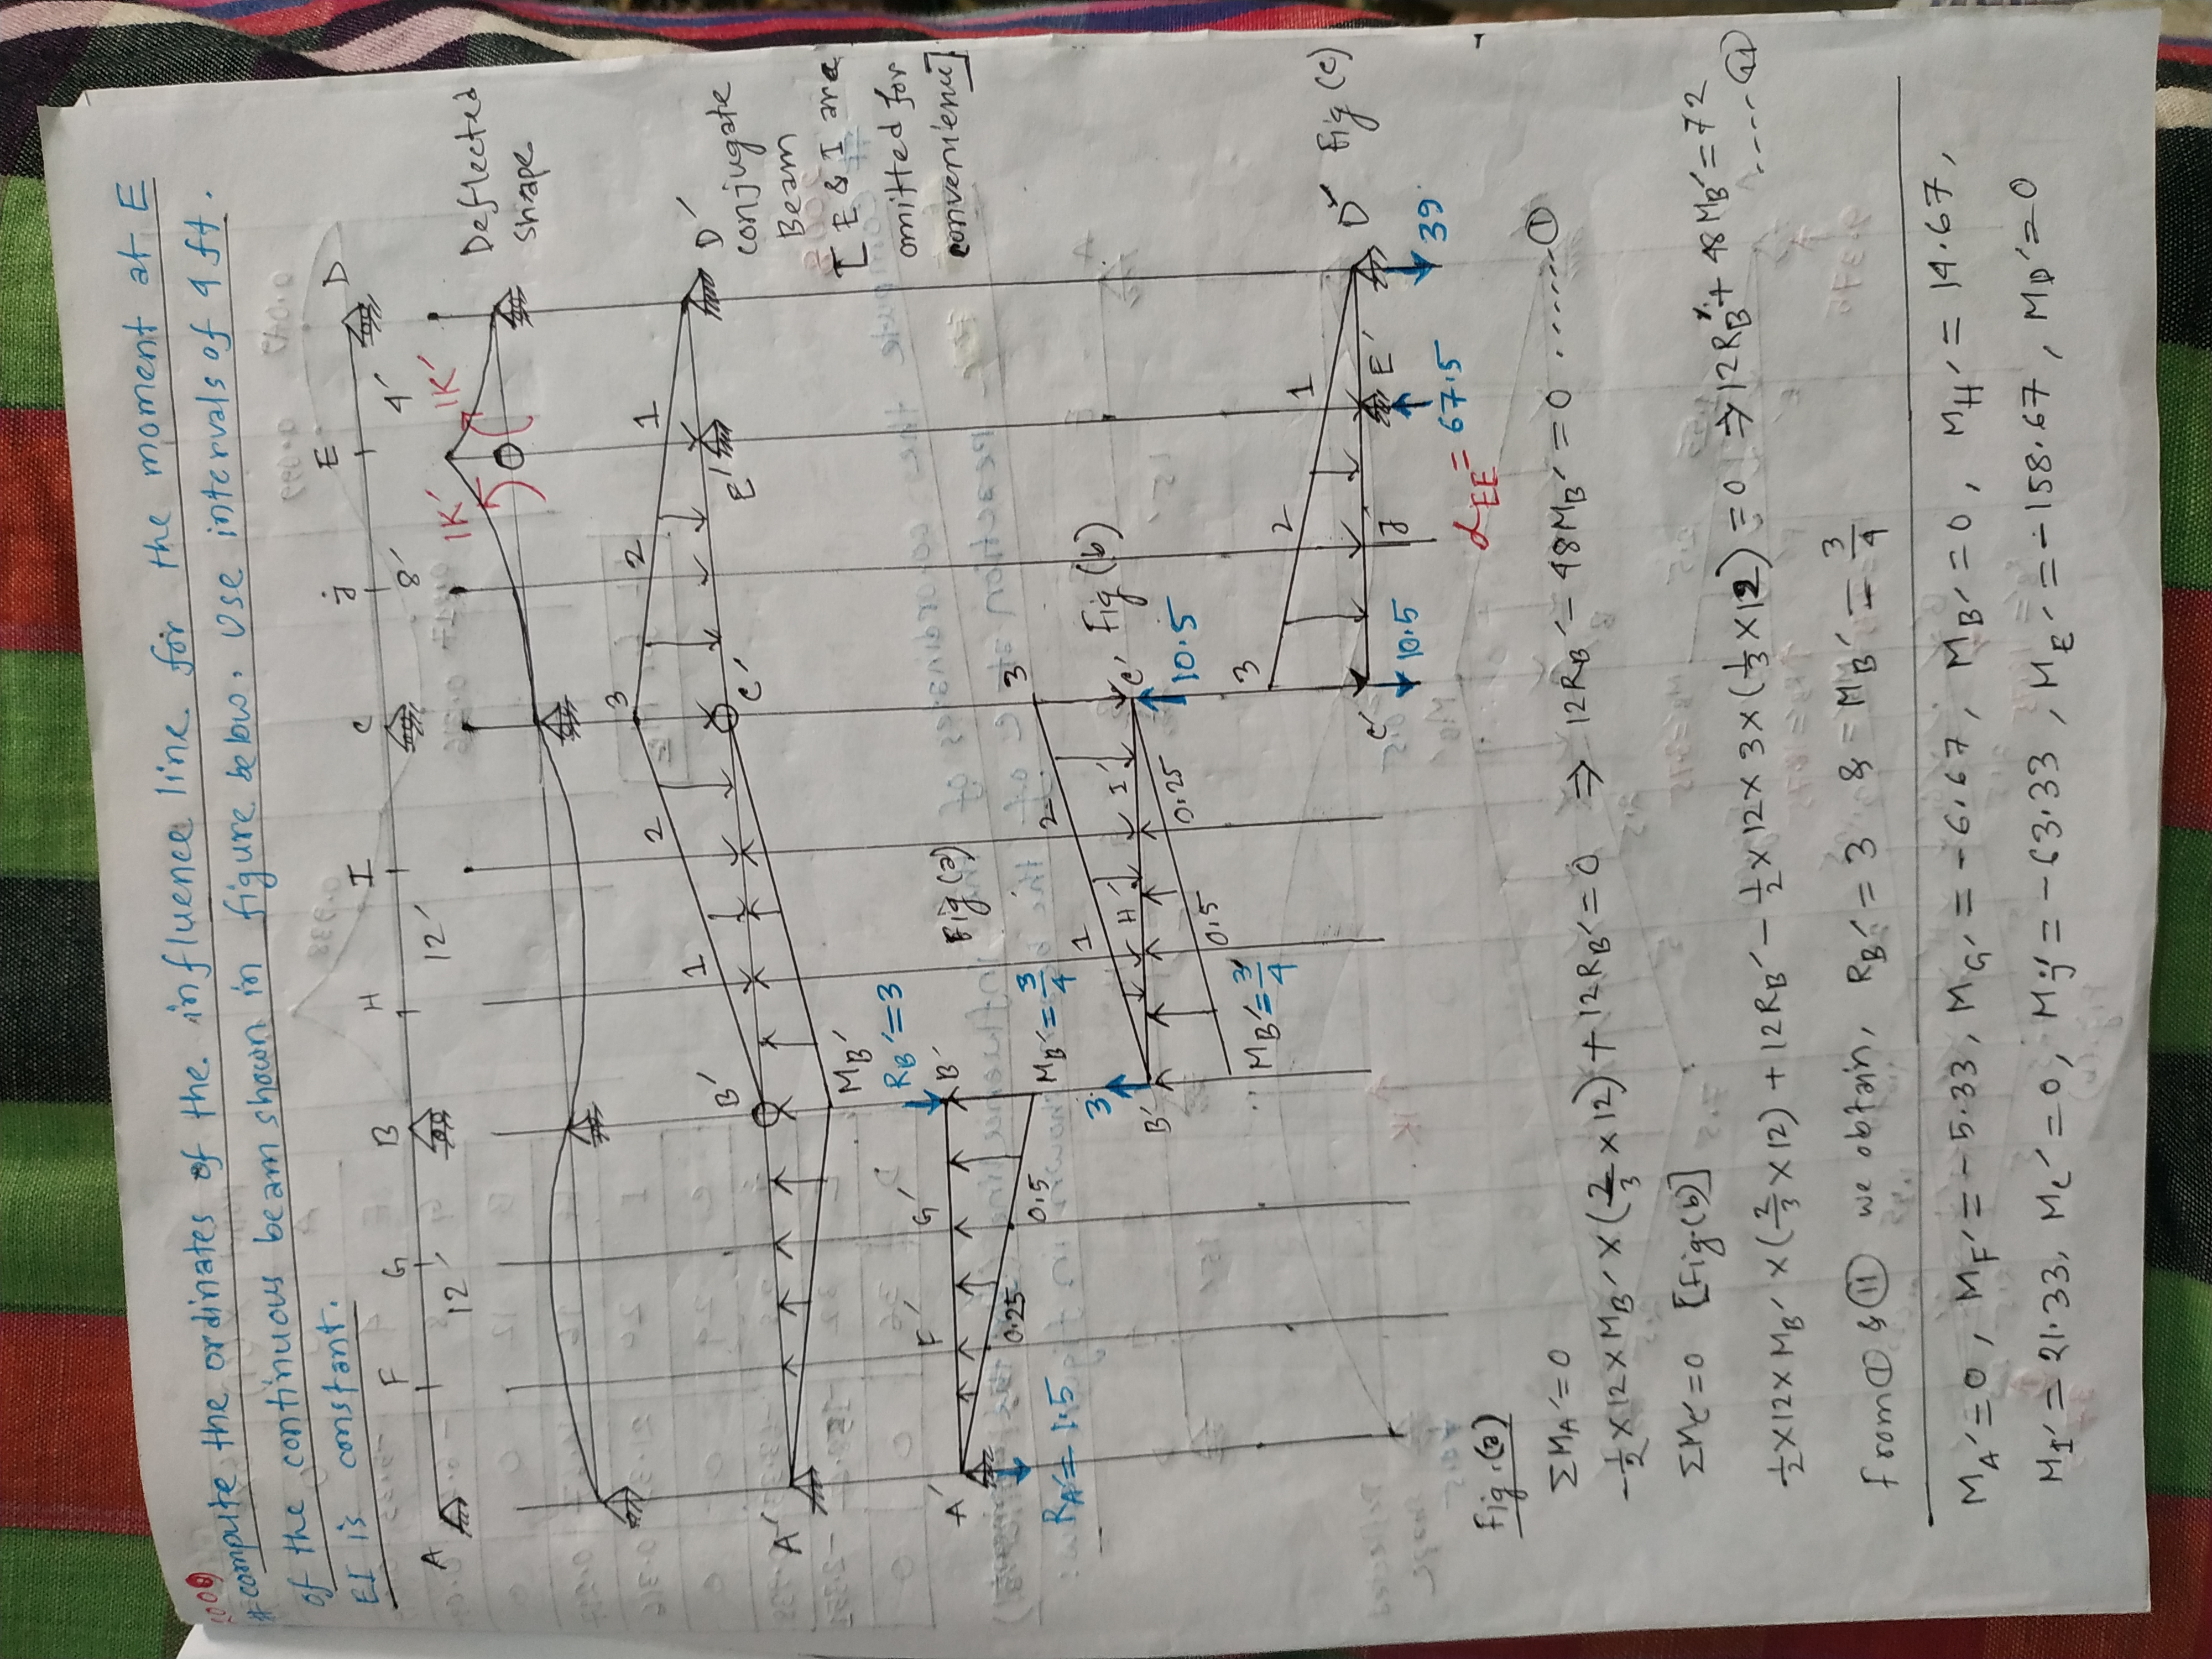 # compute the ordinates of the influence line for the moment at E
of the continuous beam shown in figure below. Use intervals of 4 ft.
EI is constant.
A F G B H I C j E D
12' 12' 8' 4'
1K' 1K'
Deflected
shape
3 2 1 2 1
A' B' C' E' D'
MB'
conjugate
Beam
[E & I are
omitted for
convenience]
Fig(a)
RB'=3
A' F' G' B'
0.25 0.5 MB'=3/4
RA'=1.5
Fig(b)
3 2 1
3 B' H' I' C' 10.5
MB'=3/4 0.5 0.25
D' Fig(c)
3 2 1
C' j E'
10.5 αEE=67.5 39
Fig.(a)
ΣMA'=0
-½×12×MB'×(2/3×12)+12RB'=0 ⇒ 12RB'-48MB'=0 ......①
ΣMc'=0 [Fig(b)]
½×12×MB'×(2/3×12)+12RB'-½×12×3×(1/3×12)=0 ⇒ 12RB'+48MB'=72 ....⑪
from ① & ⑪ we obtain, RB'=3 & =MB'=3/4
MA'=0, MF'=-5.33, MG'=-6.67, MB'=0, MH'=14.67,
MI'=21.33, Mc'=0, Mj'=-63.33, ME'=-158.67, MD'=0